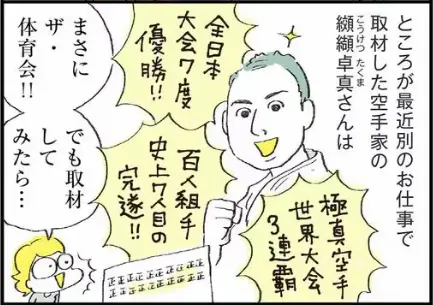 ところが最近別のお仕事で
取材した空手家の
こうけつ たくま
纐纈卓真さんは
全日本
大会7度
優勝!!
百人組手
史上7人目の
完遂!!
極真空手
世界大会
3連覇
正正正正正正正正正正
正正正正正正正正正正
まさに
ザ・
体育会!!
でも取材
して
みたら…